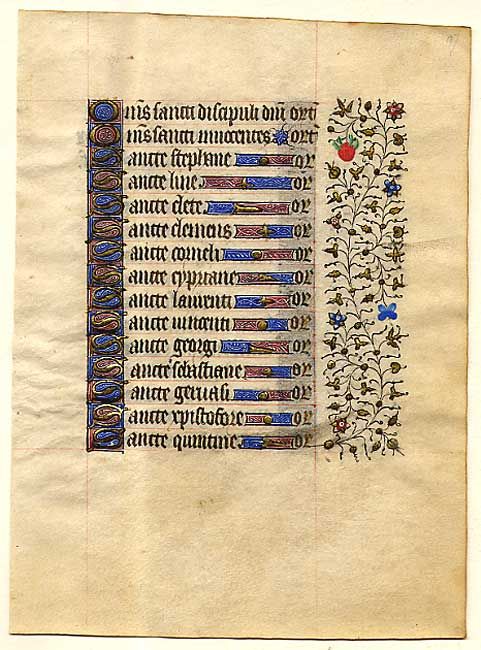 Oms sancti discipuli dni orte
Oms sancti innocentes orte
Sancte stephane or
Sancte line or
Sancte clete or
Sancte clemens or
Sancte corneli or
Sancte cypriane or
Sancte laurenti or
Sancte vincenti or
Sancte georgi or
Sancte sebastiane or
Sancte geruasi or
Sancte xpistofore or
Sancte quintine or